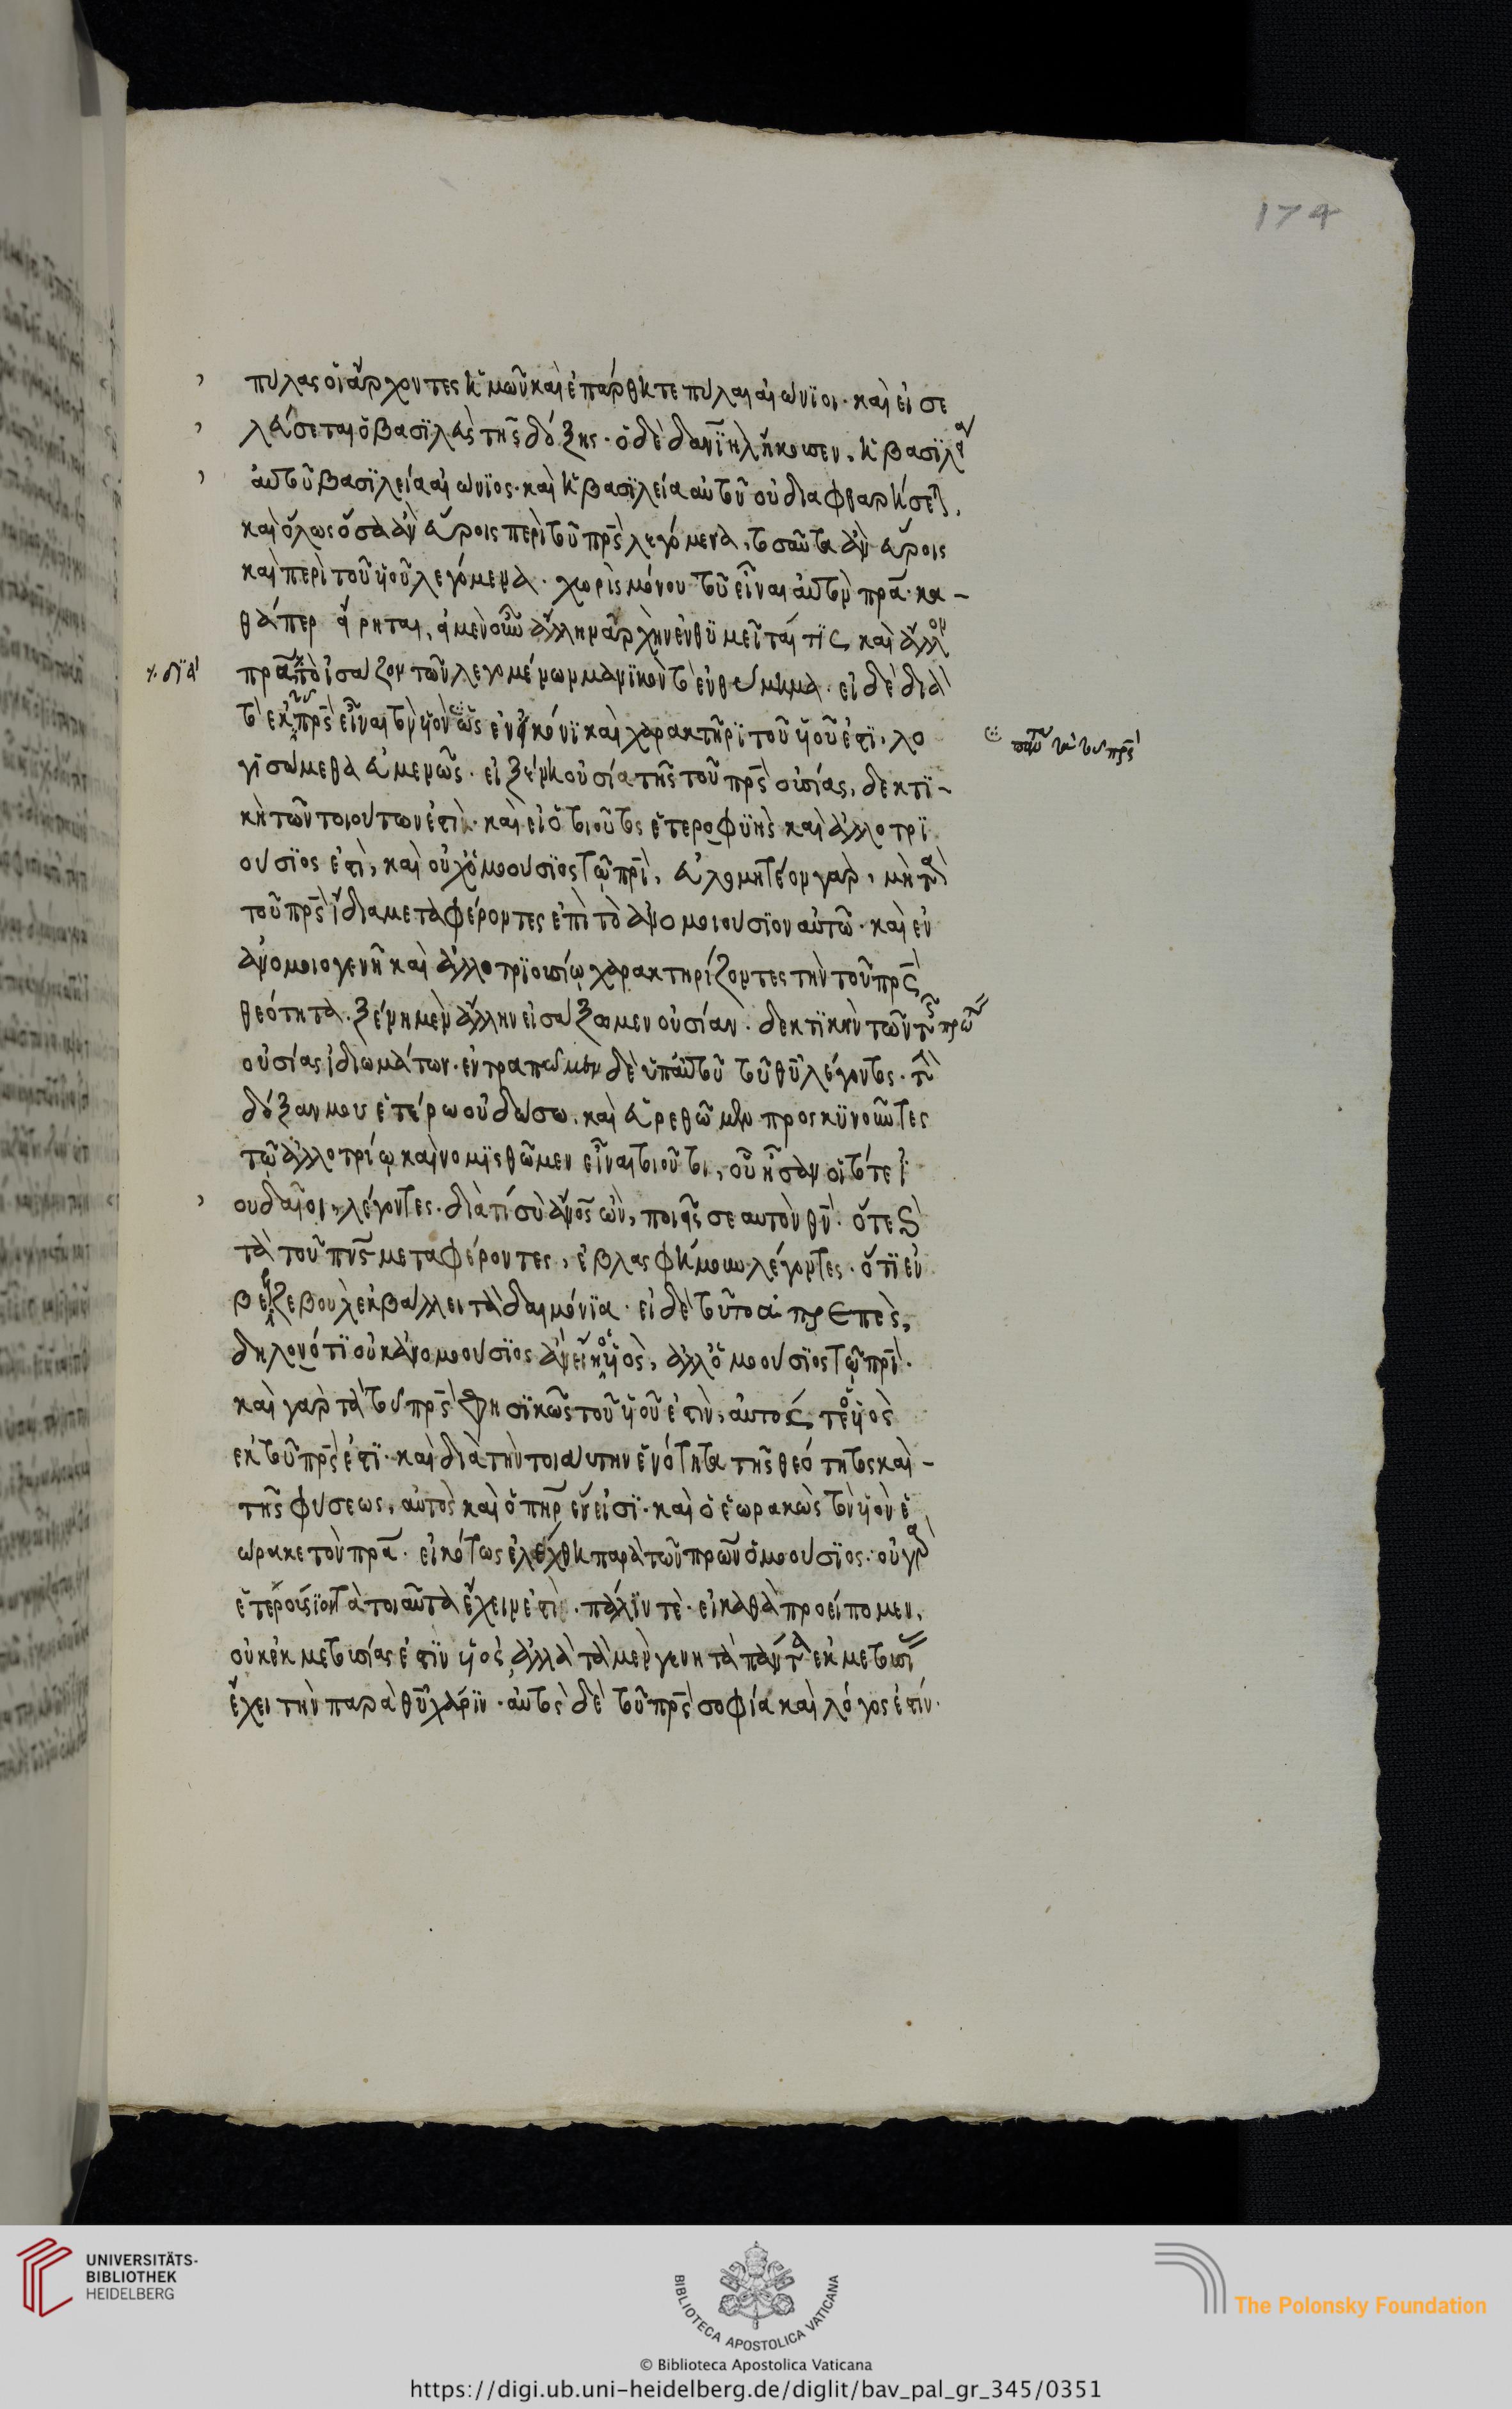 174
πυλας οἱ ἄρχοντες ἡμῶν καὶ ἐπάρθητε πυλαι αἰωνϊοι· καὶ εἰσε
λεύσεται ὁ βασϊλεὺς τῆς δόξης· ὁ δὲ δανϊὴλ ἤκουσεν, ἡ βασϊλεία
αὐτοῦ βασϊλεία αἰωνϊος· καὶ ἡ βασϊλεία αὐτοῦ οὐ διαφθαρήσεται,
καὶ ὅλως ὅσα ἂν εὕροις περὶ τοῦ πρς λεγόμενα, τοσαῦτα ἂν εὕροις
καὶ περὶ τοῦ υἱοῦ λεγόμενα· χωρὶς μόνου τοῦ εἶναι αὐτὸν πρα· κα-
θάπερ εἴρηται, εἰ μὲν οὖν ἄλλην ἀρχὴν ἐνθϋμεῖταί τϊς καὶ ἄλλον
πρα εἰσάζον τῶν λεγομένων μανϊκὸν τὸ ἐνθύμημα· εἰ δὲ διὰ
⁒ διὰ
τὸ ἐκ τοῦ πρς εἶναι τὸν υἱὸν ὡς ἐν εἰκόνϊ καὶ χαρακτῆρϊ τοῦ υἱοῦ ἐστϊ, λο
πάντα τὰ τοῦ πρς
γϊσώμεθα εὐμενῶς· εἰ ξένη οὐσία τῆς τοῦ πρς οὐσίας, δεκτϊ-
κὴ τῶν τοιούτων ἐστὶ· καὶ εἰ ὁ τοιοῦτος ἑτεροφϋὴς καὶ ἀλλοτρϊ
ούσϊος ἐστὶ, καὶ οὐχ ὁμοουσϊος τῷ πρι, εὐλαβητέον γαρ, μὴ τὰ
τοῦ πρς ἴδια μεταφέροντες ἐπὶ τὸ ἀνομοιουσϊον αὐτῶ· καὶ ἐν
ἀνομοιογενῆ καὶ ἀλλοτρϊουσίῳ χαρακτηρίζοντες τὴν τοῦ πρς
θεότητα· ξένην μὲν ἄλλην εἰσάξωμεν οὐσίαν· δεκτϊκὴν τῶν τῆς πρώτης
οὐσίας ἰδϊωμάτων· ἐντραπῶμεν δὲ ὑπ' αὐτοῦ τοῦ θυ λέγοντος· τὴν
δόξαν μου ἑτέρω οὐ δώσω, καὶ εὑρεθῶμεν προσκϋνοῦντες
τῷ ἀλλοτρίῳ καὶ νομϊσθῶμεν εἶναι τοιοῦτοι, οἷοι ἦσαν οἱ τότε ἰ
ουδαῖοι, λέγοντες· διὰ τί σὺ ἄνος ὢν, ποιεῖς σεαυτὸν θν· ὅτε καὶ
τὰ τοῦ πνς μεταφέροντες, ἐβλασφήμουν λέγοντες· ὅτϊ ἐν
βεελζεβοὺλ ἐκβάλλει τὰ δαιμόνϊα· εἰ δὲ τοῦτο ἀπρεπὲς,
δηλονότϊ οὐκ ἀνομοουσϊος ἂν εἴη ὁ υἱὸς, ἀλλ' ὁμοουσϊος τῷ πρι·
καὶ γὰρ τὰ τοῦ πρς φησϊκῶς τοῦ υἱοῦ ἐστὶν, αὐτος τε ὁ υἱὸς
ἐκ τοῦ πρς ἐστϊ· καὶ διὰ τὴν τοιαύτην ἑνότητα τῆς θεότητος καὶ-
τῆς φύσεως, αὐτὸς καὶ ὁ πηρ ἕν εἰσϊ· καὶ ὁ ἑωρακὼς τὸν υἱὸν ἑ
ώρακε τὸν πρα· εἰκότως ἐλέχθη παρὰ τῶν πρων ὁμοούσϊος· οὐ γὰρ
ἑτεροούσϊον τὰ τοιαῦτα ἔχειν ἐστὶ· πάλϊν τὲ· εἰ καθὰ προείπομεν,
οὐκ ἐκ μετουσίας ἐστϊν υἱὸς, ἀλλὰ τὰ μὲν γενητὰ πάντα ἐκ μετουσίας
ἔχει τὴν παρὰ θυ χάρϊν· αὐτὸς δὲ τοῦ πρς σοφία καὶ λόγος ἐστίν·
UNIVERSITÄTS-
BIBLIOTHEK
HEIDELBERG
BIBLIOTECA APOSTOLICA VATICANA
The Polonsky Foundation
© Biblioteca Apostolica Vaticana
https://digi.ub.uni-heidelberg.de/diglit/bav_pal_gr_345/0351